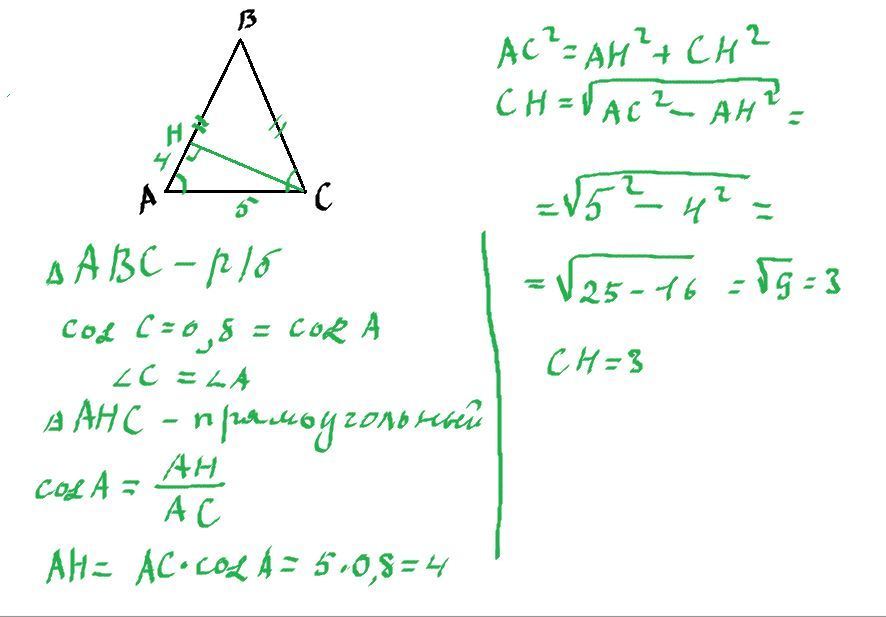 B
H
4
A
C
5
△ABC – р/б
cos C = 0,8 = cos A
∠C = ∠A
△AHC – прямоугольный
cosA = AH/AC
AH = AC·cosA = 5·0,8 = 4
AC² = AH² + CH²
CH = √(AC² – AH²) =
= √(5² – 4²) =
= √(25 – 16) = √9 = 3
CH = 3